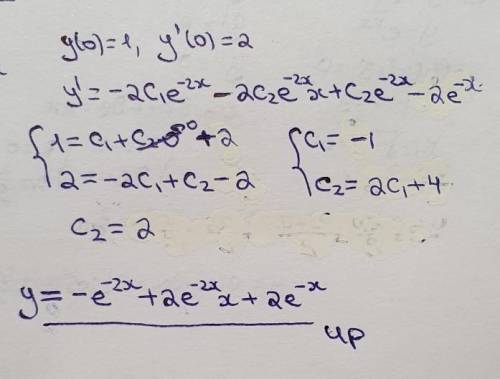 y(0)=1, y'(0)=2
y' = -2C₁e⁻²ˣ - 2C₂e⁻²ˣx + C₂e⁻²ˣ - 2e⁻ˣ
{ 1 = C₁ + C₂·0 + 2 { C₁ = -1
2 = -2C₁ + C₂ - 2 C₂ = 2C₁ + 4
C₂ = 2
y = -e⁻²ˣ + 2e⁻²ˣx + 2e⁻ˣ
чр